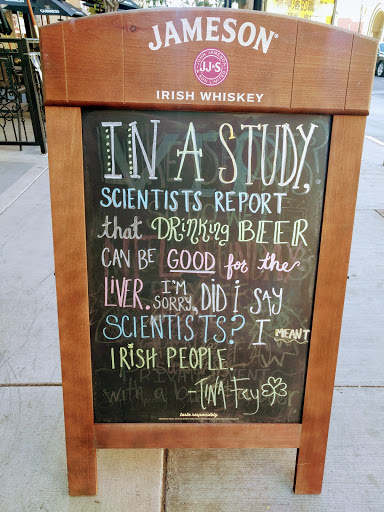 JAMESON
JJ&S
IRISH WHISKEY
IN A STUDY,
SCIENTISTS REPORT
that DRINKING BEER
CAN BE GOOD for the
LIVER. I'M SORRY, DID i SAY
SCIENTISTS? I MEANT
IRISH PEOPLE.
-TINA Fey
taste responsibly